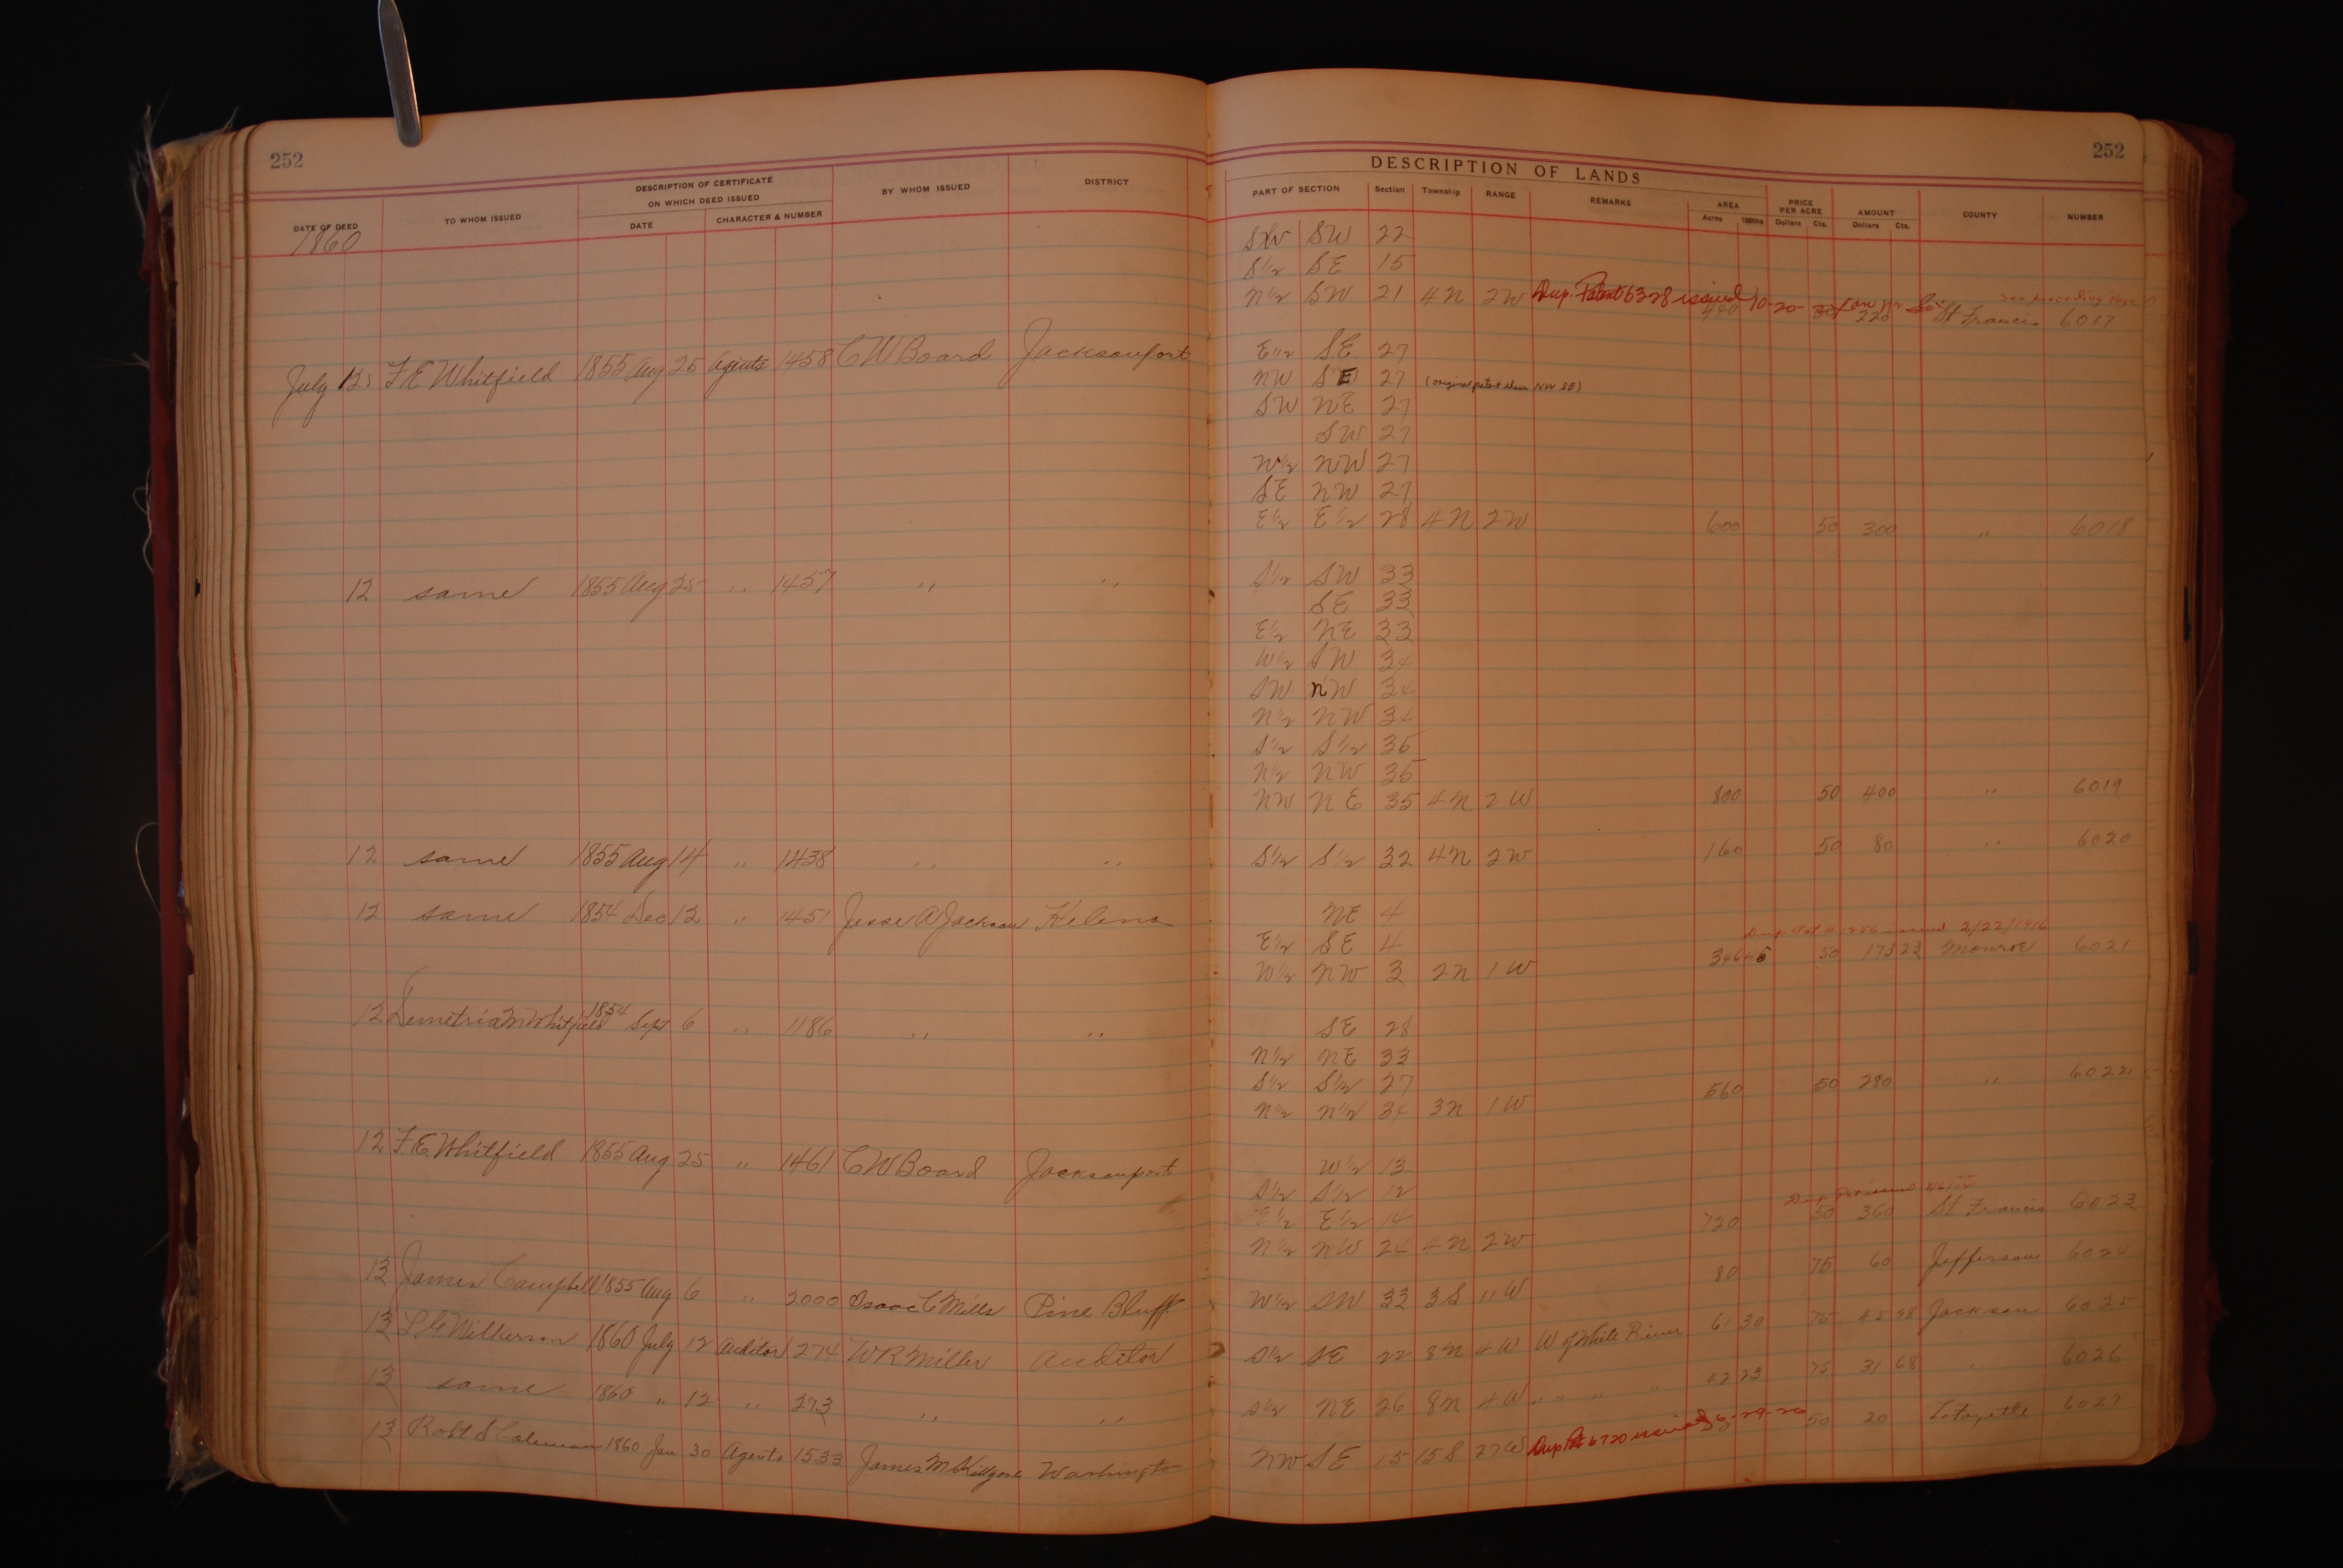 252
252
DESCRIPTION OF LANDS
DATE OF DEED TO WHOM ISSUED DESCRIPTION OF CERTIFICATE ON WHICH DEED ISSUED DATE CHARACTER & NUMBER BY WHOM ISSUED DISTRICT PART OF SECTION Section Township RANGE REMARKS AREA Acres 100ths PRICE PER ACRE Dollars Cts. AMOUNT Dollars Cts. COUNTY NUMBER
1860
SW SW 22
S½ SE 15
N½ SW 21 4N 2W Dup. Patent 6328 issued 10-20- 440 220 St Francis 6017
see preceding Page
July 12 F.E. Whitfield 1855 Aug 25 Agents 1458 C W Board Jacksonport E½ SE 27
NW SE 27 (original patent shows NW SE)
SW NE 27
SW 27
W½ NW 27
SE NW 27
E½ E½ 28 4N 2W 600 50 300 " 6018
12 same 1855 Aug 25 " 1457 " " S½ SW 33
SE 33
E½ NE 33
W½ SW 34
SW NW 34
N½ NW 34
S½ S½ 35
N½ NW 35
NW NE 35 4N 2W 800 50 400 " 6019
12 same 1855 Aug 14 " 1438 " " S½ S½ 32 4N 2W 160 50 80 " 6020
12 same 1854 Dec 12 " 1451 Jesse A Jackson Helena NE 4
Dup Pat issued 2/22/1916
E½ SE 4
W½ NW 3 2N 1W 346 45 50 173 23 Monroe 6021
12 Demetria M Whitfield 1854 Sept 6 " 1186 " " SE 28
N½ NE 33
S½ S½ 27
N½ N½ 34 3N 1W 560 50 280 " 6022
12 F.E. Whitfield 1855 Aug 25 " 1461 C W Board Jacksonport W½ 13
S½ S½ 12
E½ E½ 14
Dup Pat issued
N½ NW 24 4N 2W 720 50 360 St Francis 6023
13 James Campbell 1855 Aug 6 " 2000 Isaac C Mills Pine Bluff W½ SW 33 3S 11W 80 75 60 Jefferson 6024
13 L G Wilkerson 1860 July 12 Auditor 274 W R Miller Auditor S½ SE 22 8N 4W W of White River 61 30 75 45 98 Jackson 6025
13 same 1860 " 12 " 273 " " S½ NE 26 8N 4W " " " " 42 23 75 31 68 " 6026
13 Robt S Coleman 1860 Jan 30 Agents 1533 James M Killgore Washington NW SE 15 15S 27W Dup Pat 6720 issued 50 20 Lafayette 6027